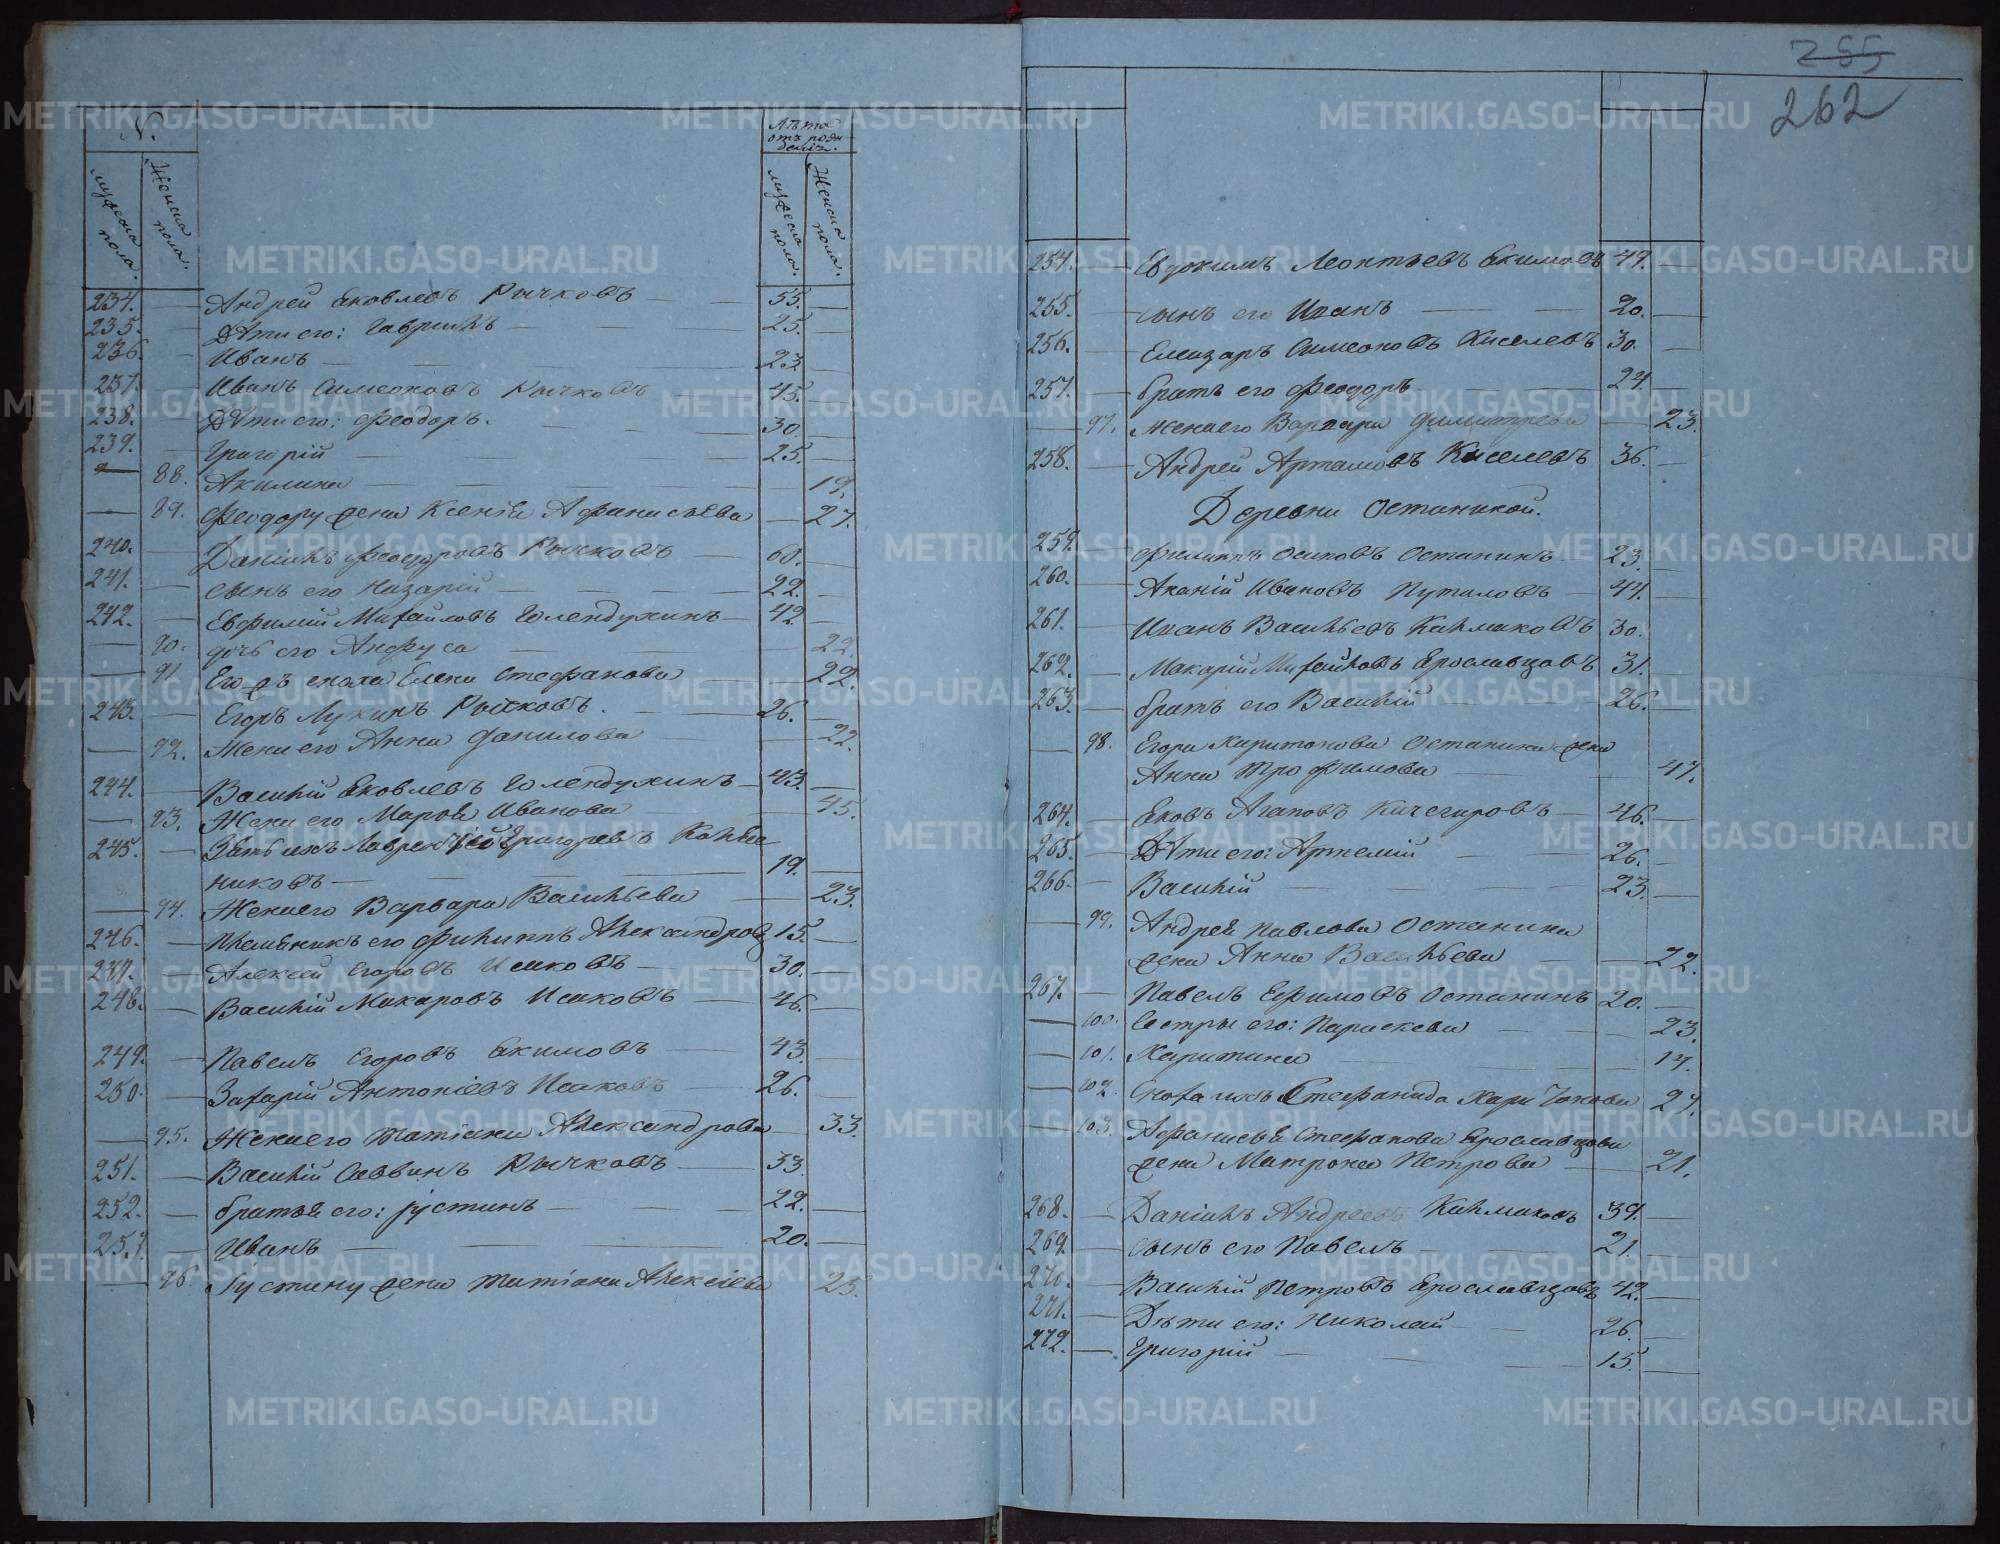 №.
Лѣта отъ рождениiя.
мужеска пола.
Женска пола.
мужеска пола.
Женска пола.
234. Андрей Яковлевъ Рычковъ 55.
235. Дѣти его: Гавриилъ 25.
236. Иванъ 23
237. Иванъ Симеоновъ Рычковъ 45.
238. Дѣти его: Феодоръ. 30.
239. Григорій 25.
88. Акилина 19.
89. Феодору жена Ксенія Афанасьева 27.
240. Даніилъ Феодоровъ Рычковъ 60.
241. сынъ его Назарій 22.
242. Евфимій Михайловъ Голендухинъ 42
90. дочь его Анфуса 22.
91. Его жъ сноха Елена Стефанова 22.
243. Егоръ Лукинъ Рычковъ. 26.
92. Жена его Анна Данилова 22.
244. Василій Яковлевъ Голендухинъ 43.
93. Жена его Марѳа Иванова 45.
245. Зять ихъ Лаврентій Григорьевъ
никовъ 19.
94. Жена его Варвара Васильева 23.
246. Племянникъ его Филиппъ Александровъ 15.
247. Алексей Егоровъ Исаковъ 30.
248. Василій Макаровъ Исаковъ 46.
249. Павелъ Егоровъ Екимовъ 43.
250. Захарій Антоніевъ Исаковъ 26.
95. Жена его Татіана Александрова 33.
251. Василій Саввинъ Рычковъ 33.
252. братья его: Іустинъ 22.
253. Иванъ 20.
96. Іустину жена Татіана Алексіева 23.
255
262
254. Евдокимъ Леонтьевъ Екимовъ 49.
255. сынъ его Иванъ 20.
256. Елизаръ Симеоновъ Киселевъ 30.
257. братъ его Феодоръ 24
97. Жена его Варвара Димитрева 23.
258. Андрей Артамовъ Киселевъ 36.
Деревни Останиной.
259. Филиппъ Осиповъ Останинъ 23.
260. Ананій Ивановъ Путиловъ 44.
261. Иванъ Васильевъ Калмаковъ 30.
262. Макарій Михайловъ Ярославцовъ 31.
263. братъ его Василій 26.
98. Егора Харитонова Останина жена
Анна Трофимова 47.
264. Яковъ Агаповъ Кичегировъ 46.
265. Дѣти его: Артемій 26.
266. Василій 23.
99. Андрея Павлова Останина
жена Анна Васильева 22.
267. Павелъ Ефимовъ Останинъ 20.
100. Сестры его: Параскева 23.
101. Харитина 17.
102. Сноха ихъ Стефанида Харитонова 27.
103. Афанасья Стефанова Ярославцова
жена Матрона Петрова 21.
268. Даніилъ Андреевъ Калмаковъ 39.
269. сынъ его Павелъ 21.
270. Василій Петровъ Ярославцовъ 42.
271. Дѣти его: Николай 26.
272. Григорій 15.